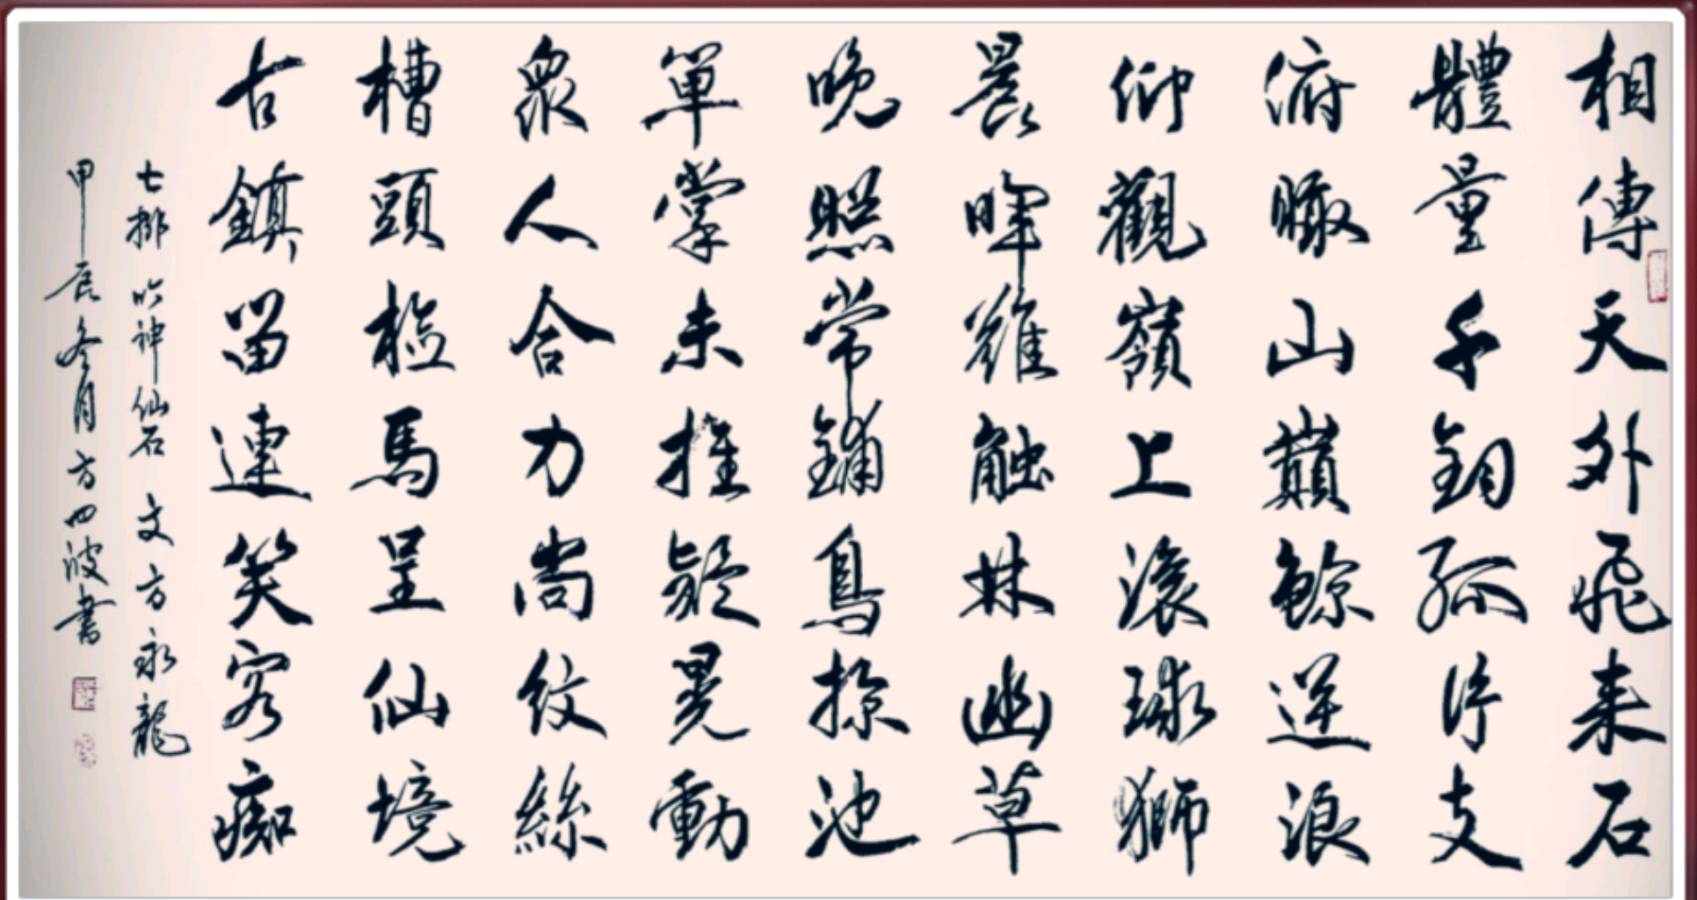 相傳天外飛來石
體量千鈞孤片支
俯瞰山巔鯨逆浪
仰觀嶺上滾球獅
晨暉難觸林幽草
晚照常鋪鳥掠池
單掌未推疑晃動
衆人合力尚紋絲
槽頭馬呈仙境
古鎮留連笑客痴
七排 吟神仙石 文方永龍
甲辰冬月方四波書